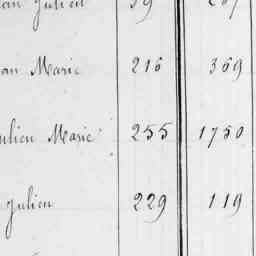 Julien 59
an Marie 216 369
ulien Marie 255 1750
Julien 229 119